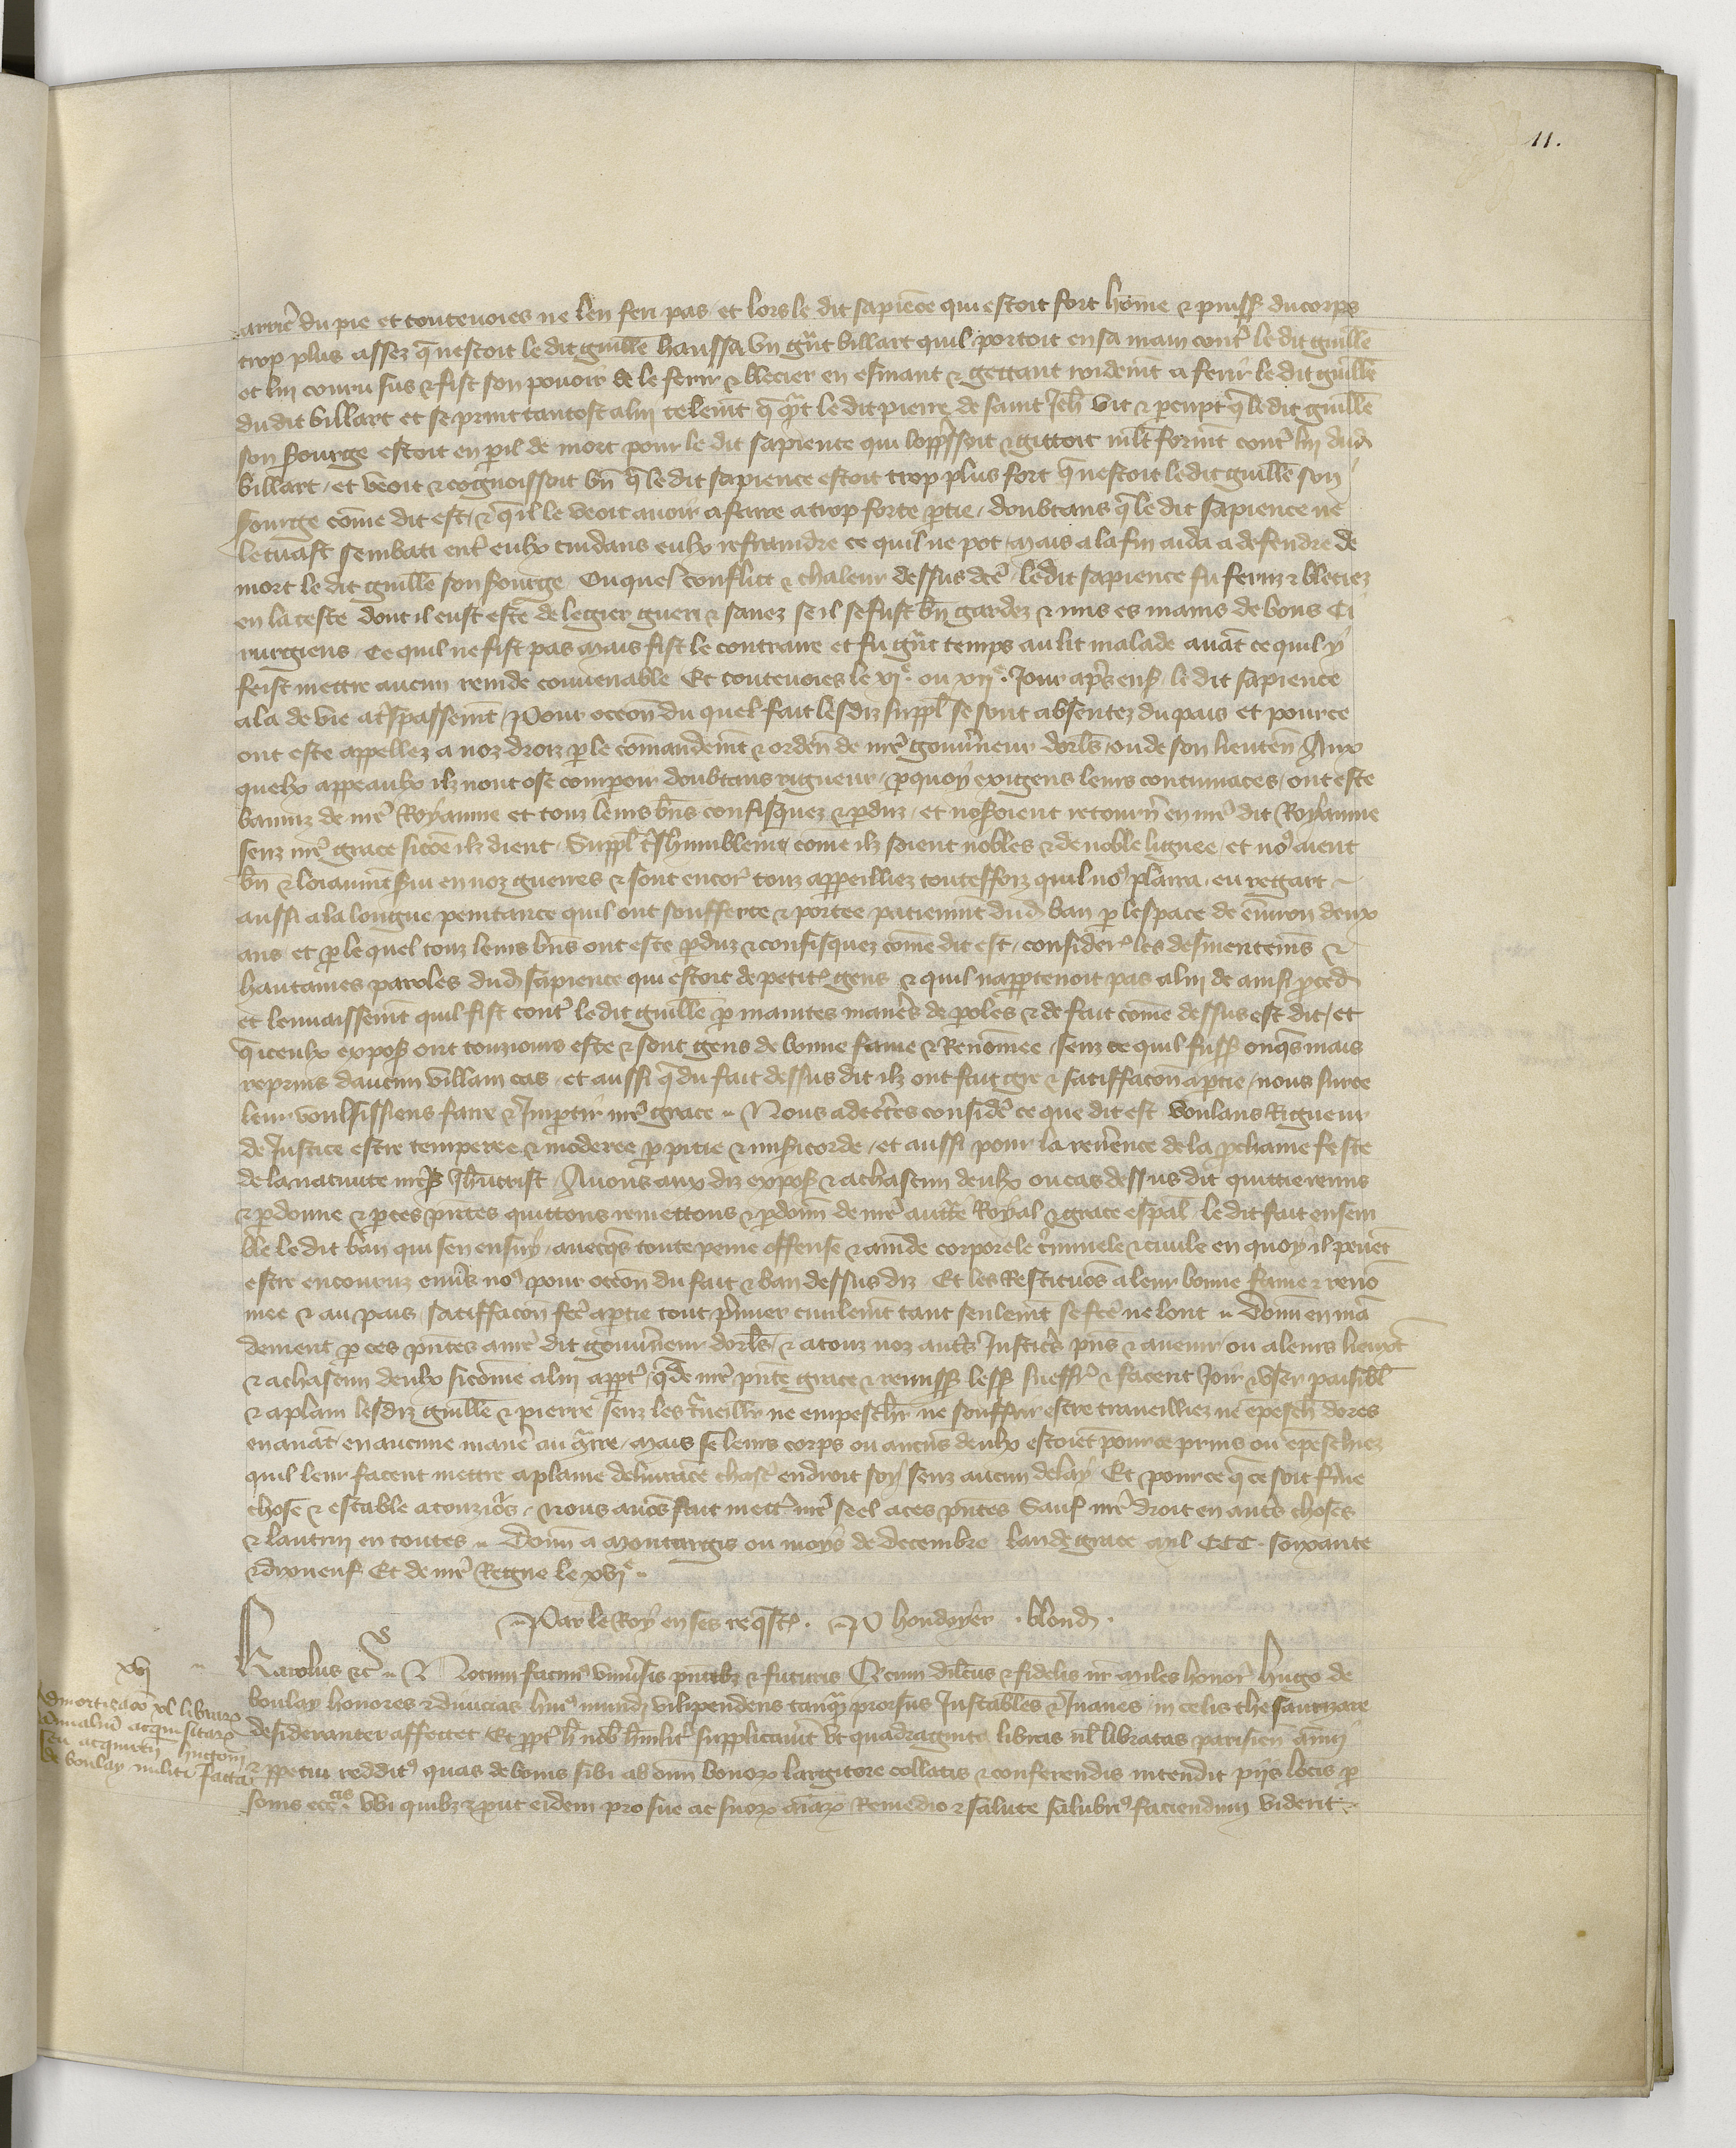 11.
arrie du pie et toutevoies ne len feri pas et lors le dit sapience qui estoit fort hōme & puiss du corps
trop plus assez q̄ nestoit le dit guille haussa un gñt billart quil portoit en sa main cont' le dit guille
et luy couru sus & fist son povoir de le ferir & blecier en esmant & gettant roidemt a ferir le dit guille
du dit billart et se print tantost a luy telemt q̄ qāt le dit pierre de saint Jeh vit & perceupt q̄ le dit guille
son serourge estoit en pil de mort pour le dit sapience qui loppssoit & gittoit mlt formt cont' luy dud
billart / et veoit & cognoissoit bn̄ q̄ le dit sapience estoit trop plus fort q̄ nestoit le dit guille son
serourge cōme dit est / & q̄ il le veoit avoir a faire a trop forte ptie / doubtans q̄ le dit sapience ne
le tuast sembati ent' eulx cuidans eulx restraindre ce quil ne pot / mais a la fin aida a defendre de
mort le dit guille son serourge Ouquel conflict & chaleur dessus dce le dit sapience fu feruz & bleciez
en la teste dont il eust este de legier gueri & sanez se il se fust bn̄ gardez & mis es mains de bons Ci
rurgiens / ce quil ne fist pas mais fist le contraire et fu gñt temps au lit malade avāt ce quil y
feist mettre aucun remde convenable Et toutevoies le vj.e ou viij.e Jour aps ens le dit sapience
ala de vie a tspassemt / Pour occon du quel fait lesdiz suppl se sont absentez du pais et pour ce
ont este appellez a noz droiz p le cōmandemt & orden de nre gouvneur dorls ou de son lieuten Aux
quelx appeaulx ilz nont ose comparoir doubtans rigueur / pquoy exigens leurs contumaces / ont este
banniz de nre Royaume et touz leurs bns confisquez & pduz / et nosoient retourn en nre dit Royaume
senz nre grace si cōe ilz dient / Suppl tshumblemt cōme ilz soient nobles & de noble lignee / et nos aient
bn̄ & loiaumt servi en noz guerres & sont encor touz appeilliez toutesfoiz quil nos plaira / eu regart
aussi a la longue penitance quil ont soufferte & portee patienmt dud ban p lespace de environ deux
ans / et p lequel touz leurs bns ont este pduz & confisquez cōme dit est / consider les desmentemēs &
hautaines paroles dud sapience qui estoit de petites gens & quil nappartenoit pas a luy de ainsi pced
et lenvaissemt quil fist cont' le dit guille p maintes manes de poles & de fait cōme dessus est dit / et
q̄ iceulx expos ont touzjours este & sont gens de bonne fame & Renōmee / senz ce quil fuss onqs mais
reprins daucun villain cas / et aussi q̄ du fait dessus dit ilz ont fait gre & satisfacon a ptie / nous sur ce
leur voulsissiens faire & Impartir nre grace Nous adctes considere ce que dit est voulans Rigueur
de Justice estre temperee & moderee p pitie & misicorde / et aussi pour la revence de la pchaine feste
de la nativite nres Jhucrist Avons aux diz expos & a chascun deulx ou cas dessus dit quittie remis
& pdonne & p ces pntes quittons remettons & pdonn de nre auctte Royal & grace espal le dit fait ensem
ble le dit ban qui sen ensuy / avecqs toute peine offense & amde corporele cminele & civile en quoy il pevēt
estre encouruz envs nos pour occon du fait & ban dessus diz Et les Restituōs a leur bonne fame & renō
mee & au pais / satisfacon fce a ptie tout pmier civilemt tant seulemt se fce ne lont Donn en mā
dement p ces pntes a nre dit gouvneur dorls / & a touz noz auts Justics pns & avenir / ou a leurs lieuxt
& a chascun deulx si cōme a luy appt / q̄ de nre pnte grace & remiss less suefft & facent Joir & user paisibl
& a plain lesdiz guille & pierre / senz les tveillr ne empeschr ne souffrir estre traveilliez ne epesch dores
en avāt en aucune mane au qtrre / mais se leurs corps ou aucūs deulx estoiēt pour ce prins ou epeschiez
quil leur facent mettre a plaine delivrance chasc endroit soy senz aucun delay Et pour ce q̄ ce soit fme
chose & estable a touziors / Nous avōs fait mett' nre seel a ces pntes Sauf nre droit en auts choses
& lautruy en toutes Donn a Montargis ou moys de decembre lan de grace mil CCC soixante
& dixneuf Et de nre Regne le xvj.e
Par le Roy en ses reqstes . P houdoyer . blond .
xvj
Karolus &c Notum facims univsis pntibz & futuris Q cum dilcus & fidelis nr miles honor Hugo de
boulay honores & divicias huis mundi vilipendens tanq̄ prorsus Instabiles & Inanes / in celis thesaurizare
desideranter affectet Et ppt h nob hmilit supplicavit ut quadraginta libras ul libratas parisien annui
& ppetui reddits quas de bonis sibi ab omi bonoR largitore collatis & conferendis intendit pijs locis p
sonis eccis ubi quibz & put eidem pro sue ac suoR aiaR Remedio & salute salubrs faciendum viderit
Admortizacō xl libraR
annualiū acquisitaR
seu acquirēd hugoni
de boulay militi facta